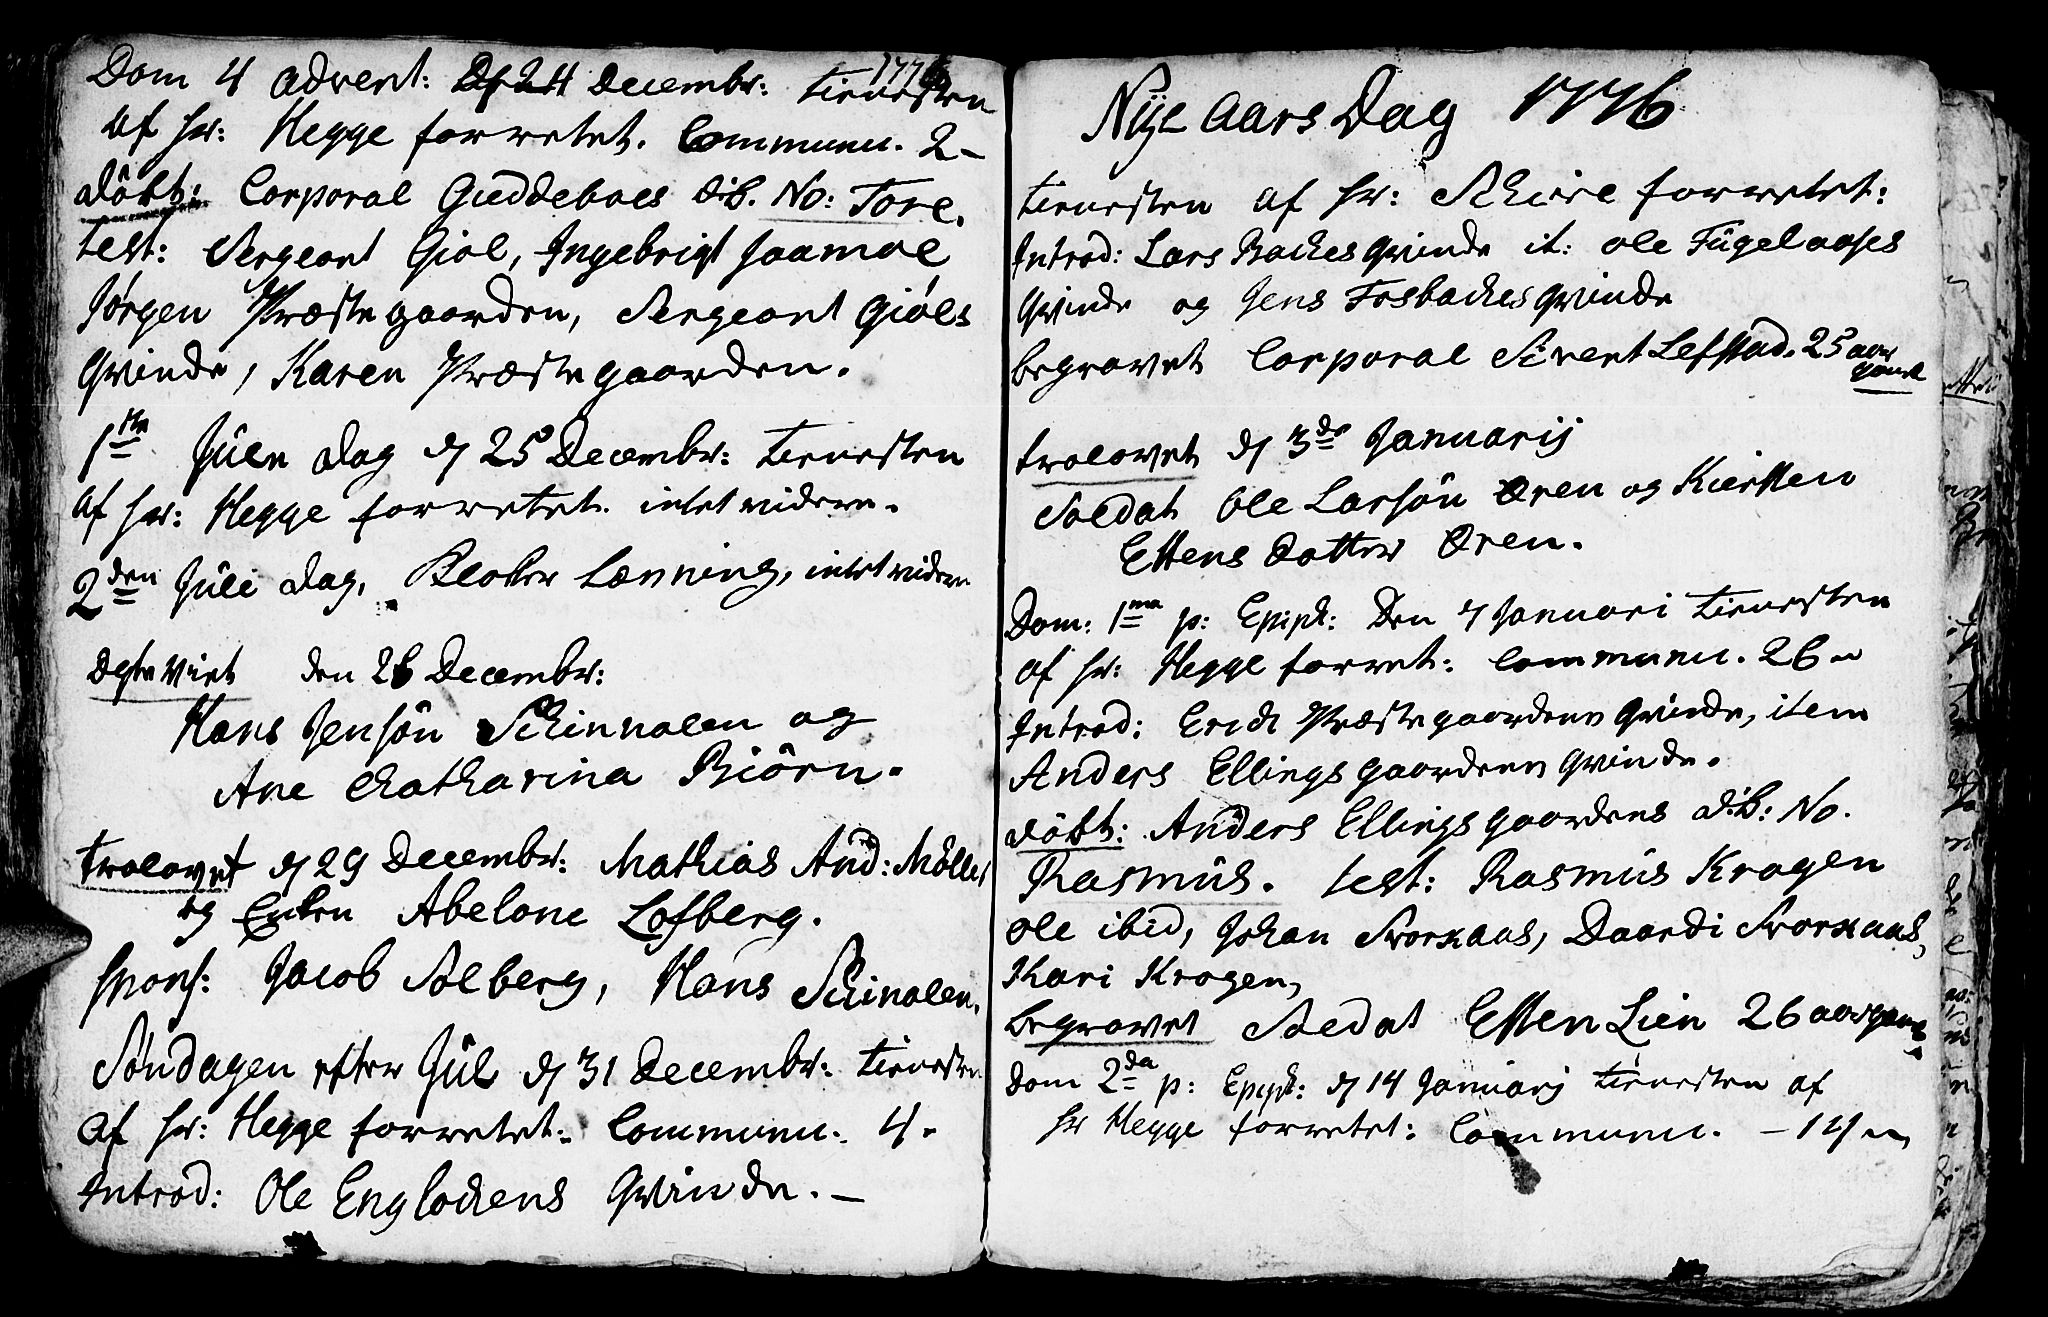 1776
Dom 4 Advent: D 24 Decembr: tienesten
af hr: Hegge forretet. Communu. 2-
döbt: Corporal Guddebaes dib. No: Tore.
test: Sergeant Giol, Ingebrigt Haamoe
Jörgen Præstegaarden, Sergeant Giöls
Qvinde, Karen Præstegaarden.
1ste Jüle Dag d 25 Decembr: tienesten
af hr: Hegge forretet. intet videre.
2den Jüle dag, Klokr Lænning, intet videre
den 26 Decembr:
Hans Jensön Schinnalen og
Ane Chatharina Biörn.
trolovet d 29 Decembr: Mathias And: Möller
og Enken Abelone Lofberg.
spons: Jacob Solberg, Hans Schinalen.
Söndagen efter Jül d 31 Decembr: tienesten
af hr: Hegge forretet: Communu. 4.
Introd: Ole Englochens Qvinde. -
Nye Aars Dag 1776
tienesten af hr: Schive forretet:
Introd: Lars Backes Qvinde it: Ole Fügelaases
Qvinde og Jens Fosbackes Qvinde
begravet Corporal Sivert Lefstad. 25 aar
gaml
trolovet d 3de Januarij
Soldat Ole Larsön Øren og Kiersten
Estens Dotter Øren.
Dom: 1ma p: Epiph: Den 7 Januari tienesten
af hr: Hegge forret: Communu. 26
Introd: Erich Præstegaardens Qvinde, item
Anders Ellingsgaardens Qvinde.
döbt: Anders Ellingsgaardens dib: No.
Rasmüs. test: Rasmüs Kragen
Ole ibid, Johan Svorkaas, Baardi Svorkaas,
Kari Kragen,
begravet Soldat Esten Lien 26 aar gaml
Dom 2da p: Epiph: d 14 Januarj tienesten af
hr Hegge forretet: Communu. - 14